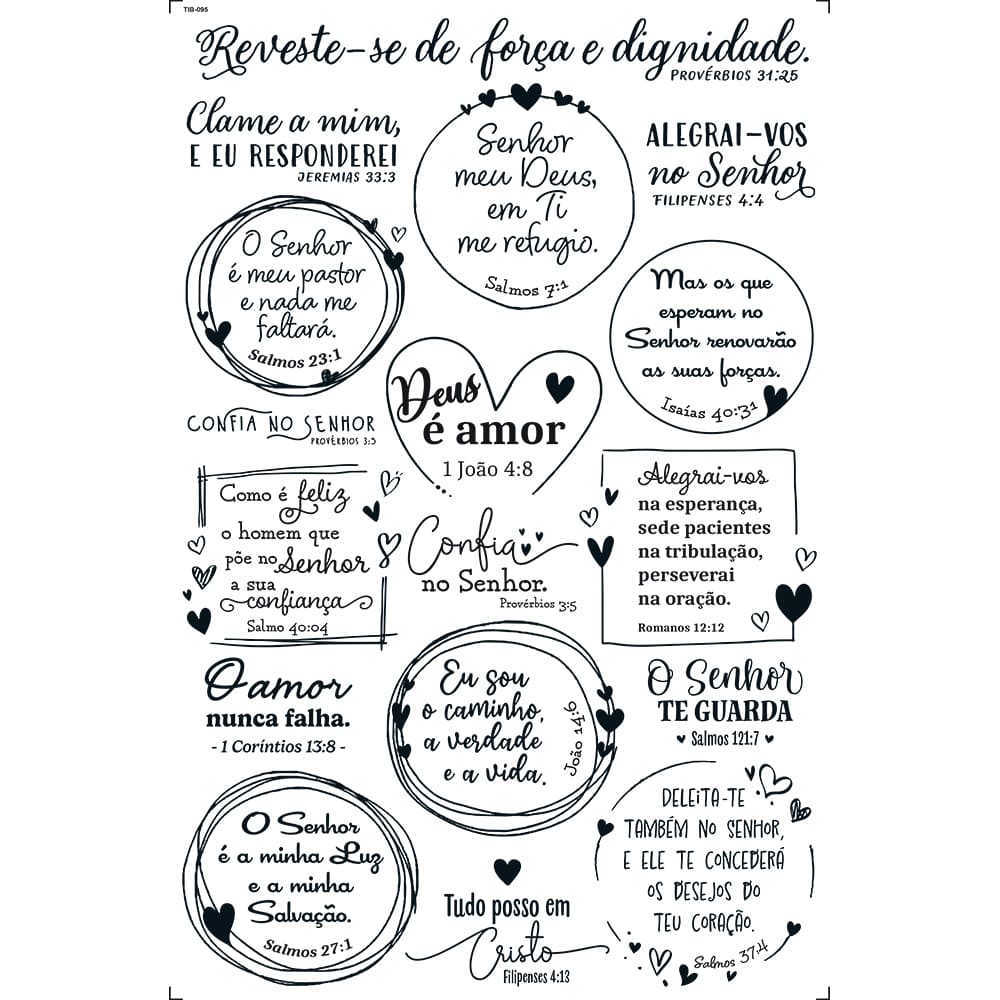 TIB-095
Reveste-se de força e dignidade.
PROVÉRBIOS 31:25
Clame a mim,
E EU RESPONDEREI
JEREMIAS 33:3
Senhor
meu Deus,
em Ti
me refugio.
Salmos 7:1
ALEGRAI-VOS
no Senhor
FILIPENSES 4:4
O Senhor
é meu pastor
e nada me
faltará.
Salmos 23:1
Mas os que
esperam no
Senhor renovarão
as suas forças.
Isaías 40:31
Deus
é amor
1 João 4:8
CONFIA NO SENHOR
PROVÉRBIOS 3:5
Como é feliz
o homem que
põe no Senhor
a sua
confiança
Salmo 40:04
Confia
no Senhor.
Provérbios 3:5
Alegrai-vos
na esperança,
sede pacientes
na tribulação,
perseverai
na oração.
Romanos 12:12
O amor
nunca falha.
- 1 Coríntios 13:8 -
Eu sou
o caminho,
a verdade
e a vida.
João 14:6
O Senhor
TE GUARDA
Salmos 121:7
O Senhor
é a minha Luz
e a minha
Salvação.
Salmos 27:1
Tudo posso em
Cristo
Filipenses 4:13
DELEITA-TE
TAMBÉM NO SENHOR,
E ELE TE CONCEDERÁ
OS DESEJOS DO
TEU CORAÇÃO.
Salmos 37:4